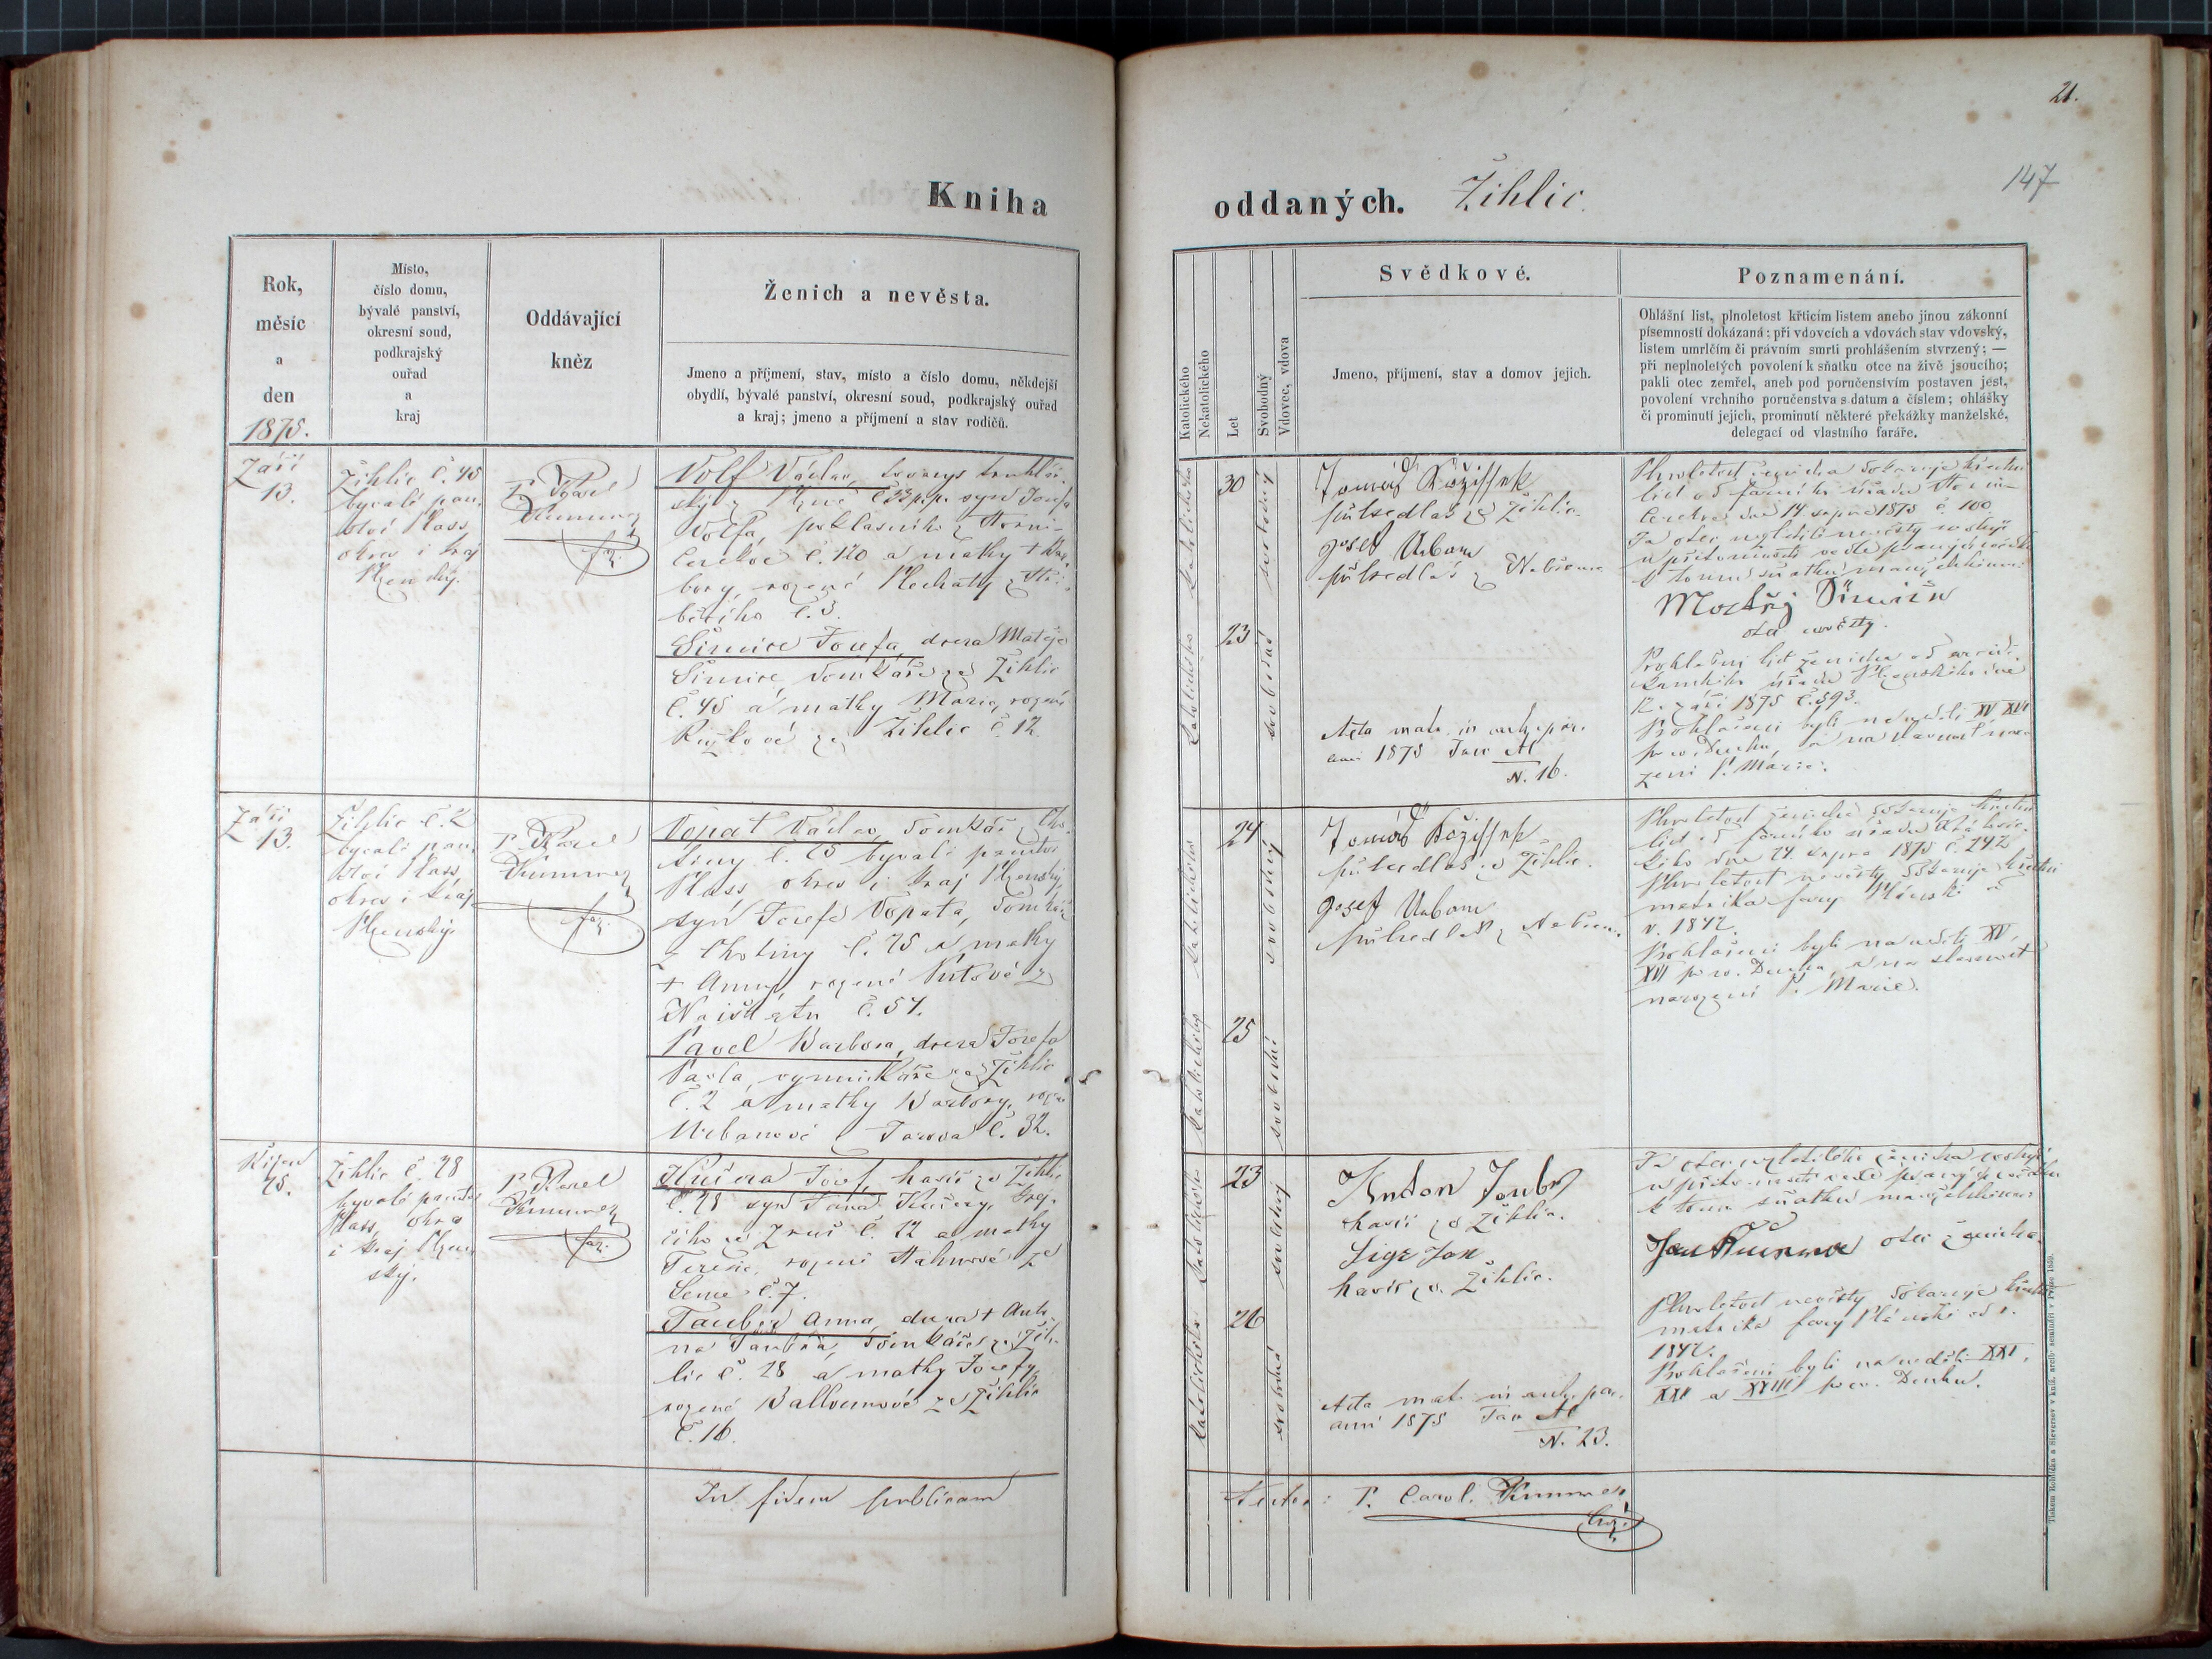 21.
147
Kniha
oddaných. Žihlic.
Rok,
měsíc
a
den
1875.
Místo,
číslo domu,
bývalé panství,
okresní soud,
podkrajský
ouřad
a
kraj
Oddávající
kněz
Ženich a nevěsta.
Jmeno a příjmení, stav, místo a číslo domu, někdejší
obydlí, bývalé panství, okresní soud, podkrajský ouřad
a kraj; jmeno a příjmení a stav rodičů.
Katolického
Nekatolického
Let
Svobodný
Vdovec, vdova
Svědkové.
Jmeno, příjmení, stav a domov jejich.
Poznamenání.
Ohlášní list, plnoletost křticím listem anebo jinou zákonní
písemností dokázaná; při vdovcích a vdovách stav vdovský,
listem umrlčím či právním smrti prohlášením stvrzený; —
při neplnoletých povolení k sňatku otce na živě jsoucího;
pakli otec zemřel, aneb pod poručenstvím postaven jest,
povolení vrchního poručenstva s datum a číslem; ohlášky
či prominutí jejich, prominutí některé překážky manželské,
delegací od vlastního faráře.
Září
13.
Žihlic č. 45
bývalé pan-
ství Plass,
okres i kraj
Plzenský.
P. Karel
Kummer
far.
Volf Václav, tovarys truhlář-
ský z č. 33 p.p. syn Josefa
Volfa, z Horní
Cerekve č. 120 a matky + Bar-
bory, rozené Plechatý z
č. 3.
Šimice Josefa, dcera Matěje
Šimice domkáře ze Žihlic
č. 45 a matky Marie, rozené
Růžkové ze Žihlic č. 12.
katolického
30
svobodný
23
svobodná
Tomáš Kožíssek
půlsedlák ze Žihlic.
Josef Urban
půlsedlák z
Acta matr. in arch. par.
anni 1875 Fasc. M
N. 16.
Plnoletost ženicha dokazuje křestní
list od farního úřadu Horní
Cerekve dne 14 srpna 1875 č. 100.
Já otec nezletilé nevěsty svoluji
u přítomnosti vedle psaných svědků
k tomu sňatku manželskému:
Matěj Šimice
otec nevěsty.
Prohlašní list ženicha od
úřadu Plzenského dne
12. září 1875 č. 593.
Prohlášeni byli na neděli XV XVI
po sv. Duchu, a na slavnost naro-
zení P. Marie.
Září
13.
Žihlic č. 2
bývalé pan-
ství Plass,
okres i kraj
Plzenský.
P. Karel
Kummer
far.
Vopat Václav, domkář z Cho-
tiny č. 25 bývalé panství
Plass okres i kraj Plzenský,
syn Josefa Vopata, domkáře
z Chotiny č. 25 a matky
+ Anny, rozené z
č. 51.
Pavel Barbora, dcera Josefa
Pavla, vyminkáře ze Žihlic
č. 2 a matky Barbory, rozené
Urbanové z č. 32.
24
svobodný
25
svobodná
Tomáš Kožíssek
půlsedlák ze Žihlic.
Josef Urban
půlsedlák z
Plnoletost ženicha dokazuje křestní
list od farního úřadu
dne 24. srpna 1875 č. 242
Plnoletost nevěsty dokazuje křestní
matrika fary Plánské od
r. 1847.
Prohlášeni byli na neděli XV,
XVI po sv. Duchu, a na slavnost
narození P. Marie.
Říjen
25.
Žihlic č. 28
bývalé panství
Plass, okres
i kraj Plzen-
ský.
P. Karel
Kummer
far.
Kučera Josef, havíř ze Žihlic
č. 28 syn Jana Kučery,
ze č. 12 a matky
Terezie, rozené ze
č. 7.
Tauber Anna, dcera + Anto-
na Taubra, domkáře ze Žih-
lic č. 28 a matky Josefy,
rozené ze Žihlic
č. 16.
23
svobodný
26
svobodná
Anton Taubr
havíř ze Žihlic.
Jan
havíř ze Žihlic.
Acta matr. in arch. par.
anni 1875 Fasc. M
N. 23.
Já otec nezletilého ženicha svoluji
u přítomnosti vedle psaných svědků
k tomu sňatku manželskému:
Jan Kučera otec ženicha.
Plnoletost nevěsty dokazuje křestní
matrika fary Plánské od r.
1847.
Prohlášeni byli na neděli XXI,
XXII a XXIII po sv. Duchu.
In fidem publicam
testor: P. Carol. Kummer
Tiskem Rohlíčka a Sieversov v kníž. arcib. semináři v Praze 1869.